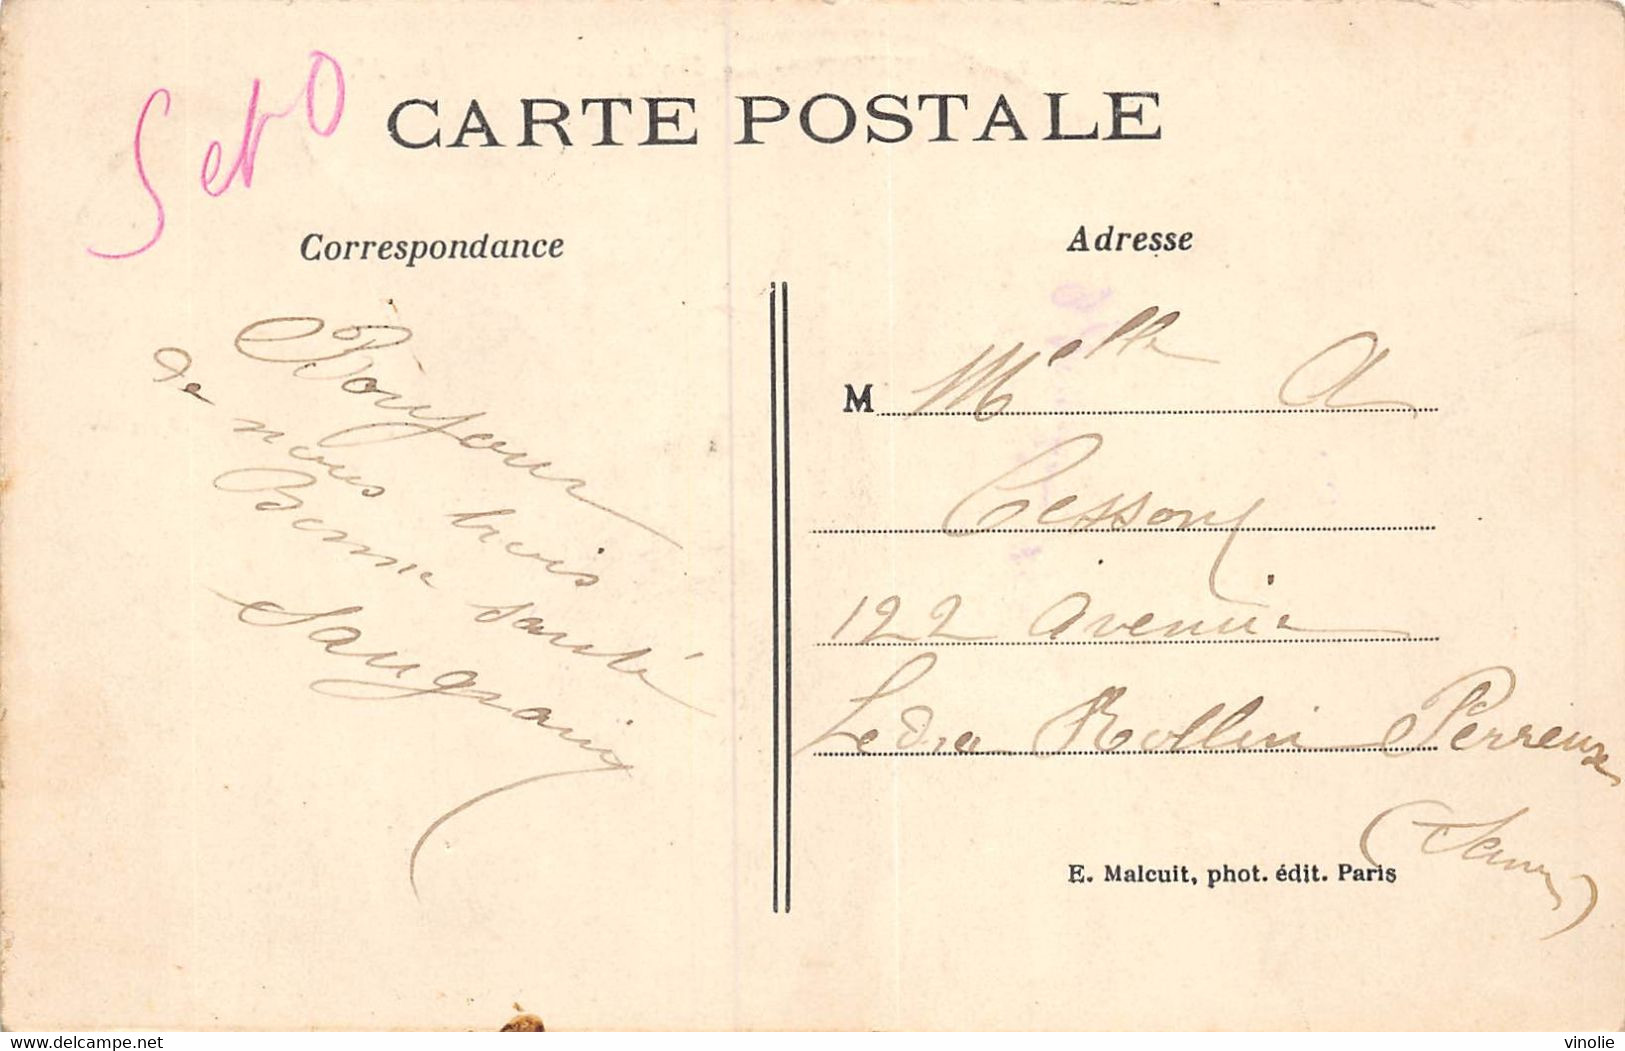 S et O
CARTE POSTALE
Correspondance
Adresse
Bonjour
de nous trois
Bonne santé
M Melle A
122 avenue
Ledru Rollin Perreux
(Seine)
E. Malcuit, phot. édit. Paris
delcampe.net
vinolie